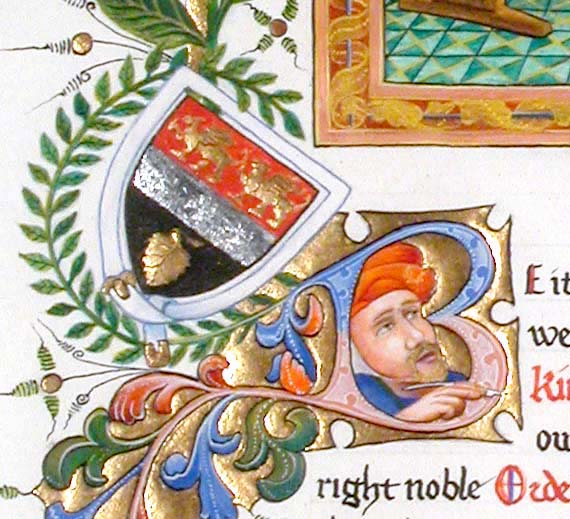 BE it
we
Kin
ou
right noble Orde